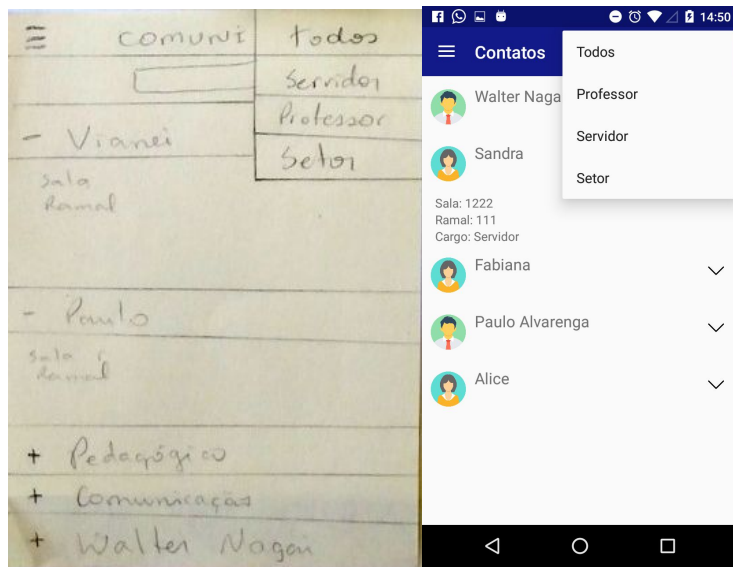 comuni
Todos
Servidor
Professor
Setor
- Vianei
Sala
Ramal
- Paulo
Sala
Ramal
+ Pedagógico
+ Comunicação
+ Walter Nagai
14:50
Contatos
Todos
Professor
Servidor
Setor
Walter Naga
Sandra
Sala: 1222
Ramal: 111
Cargo: Servidor
Fabiana
Paulo Alvarenga
Alice